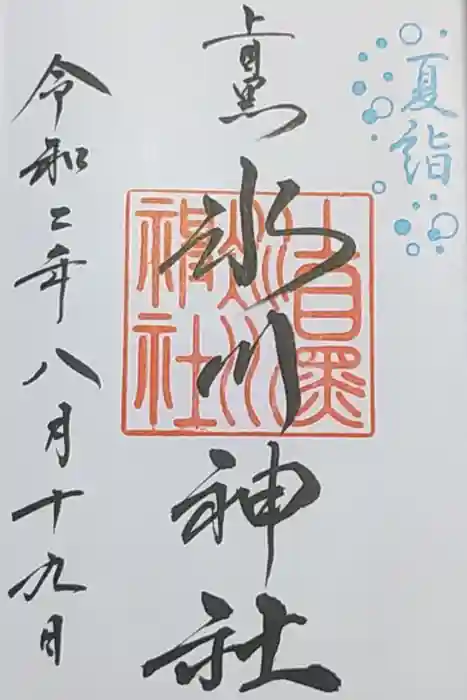 夏詣
上目黒
氷川神社
上目黒
氷川
神社
令和二年八月十九日